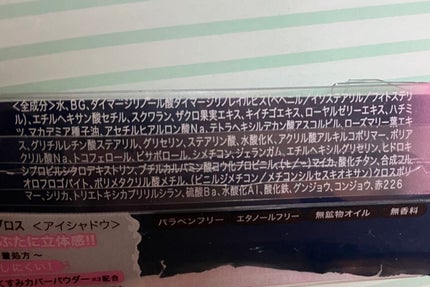 ＜全成分＞水、BG、ダイマージリノール酸ダイマージリノレイルビス(ベヘニル/イソステアリル/フィトステリ
ル)、エチルヘキサン酸セチル、スクワラン、ザクロ果実エキス、キイチゴエキス、ローヤルゼリーエキス、ハチミ
ツ、マカデミア種子油、アセチルヒアルロン酸Na、テトラヘキシルデカン酸アスコルビル、ローズマリー葉エキ
ス、グリチルレチン酸ステアリル、グリセリン、ステアリン酸、水酸化K、アクリル酸アルキルコポリマー、ポリア
クリル酸Na、トコフェロール、ビサボロール、シメチコン、ジェランガム、エチルヘキシルグリセリン、ヒドロキ
シプロピルシクロデキストリン、マイカ、酸化チタン、合成フル
オロフロゴパイト、ポリメタクリル酸メチル、(ビニルジメチコン/メチコンシルセスキオキサン)クロスポリ
マー、シリカ、トリエトキシカプリリルシラン、硫酸Ba、水酸化Al、酸化鉄、グンジョウ、コンジョウ、赤226
パラベンフリー エタノールフリー 無鉱物オイル 無香料
グロス ＜アイシャドウ＞
ぶたに立体感!!
着処方～
しにくい!
くすみカバーパウダー※3配合